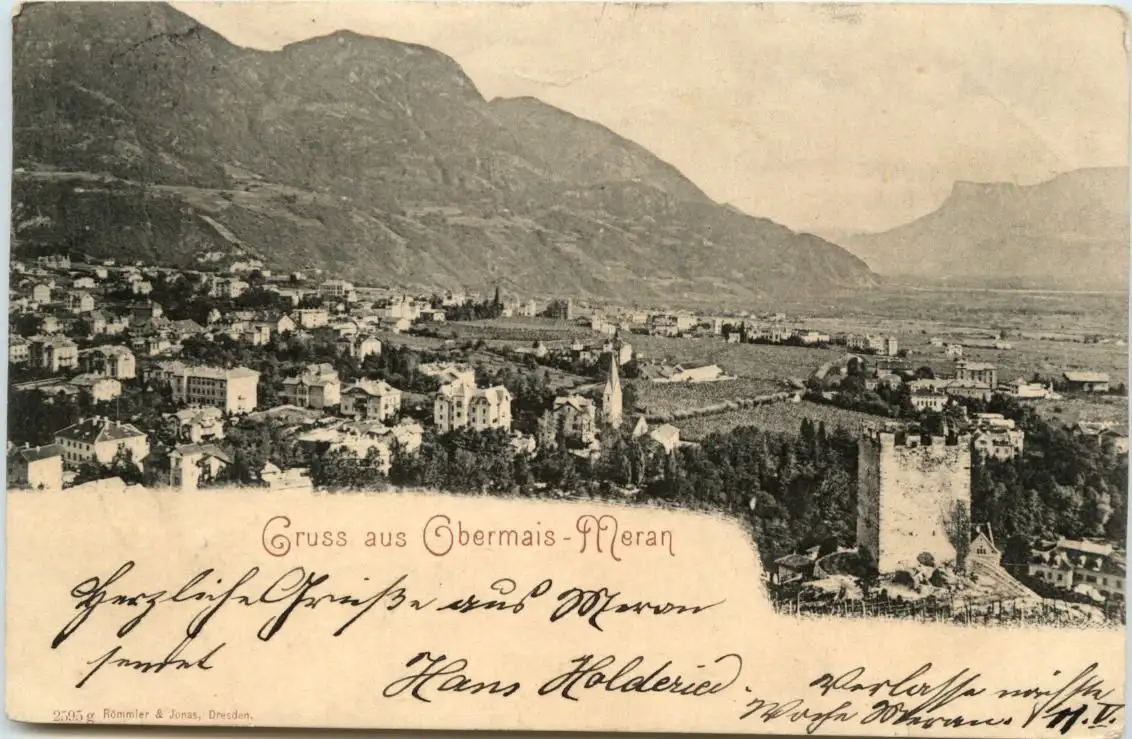 Gruss aus Obermais-Meran
Herzliche Grüße aus Meran
sendet
Hans Holderied.
Verlasse nächste
Woche Meran. 11.V.
2595 g Römmler & Jonas, Dresden.